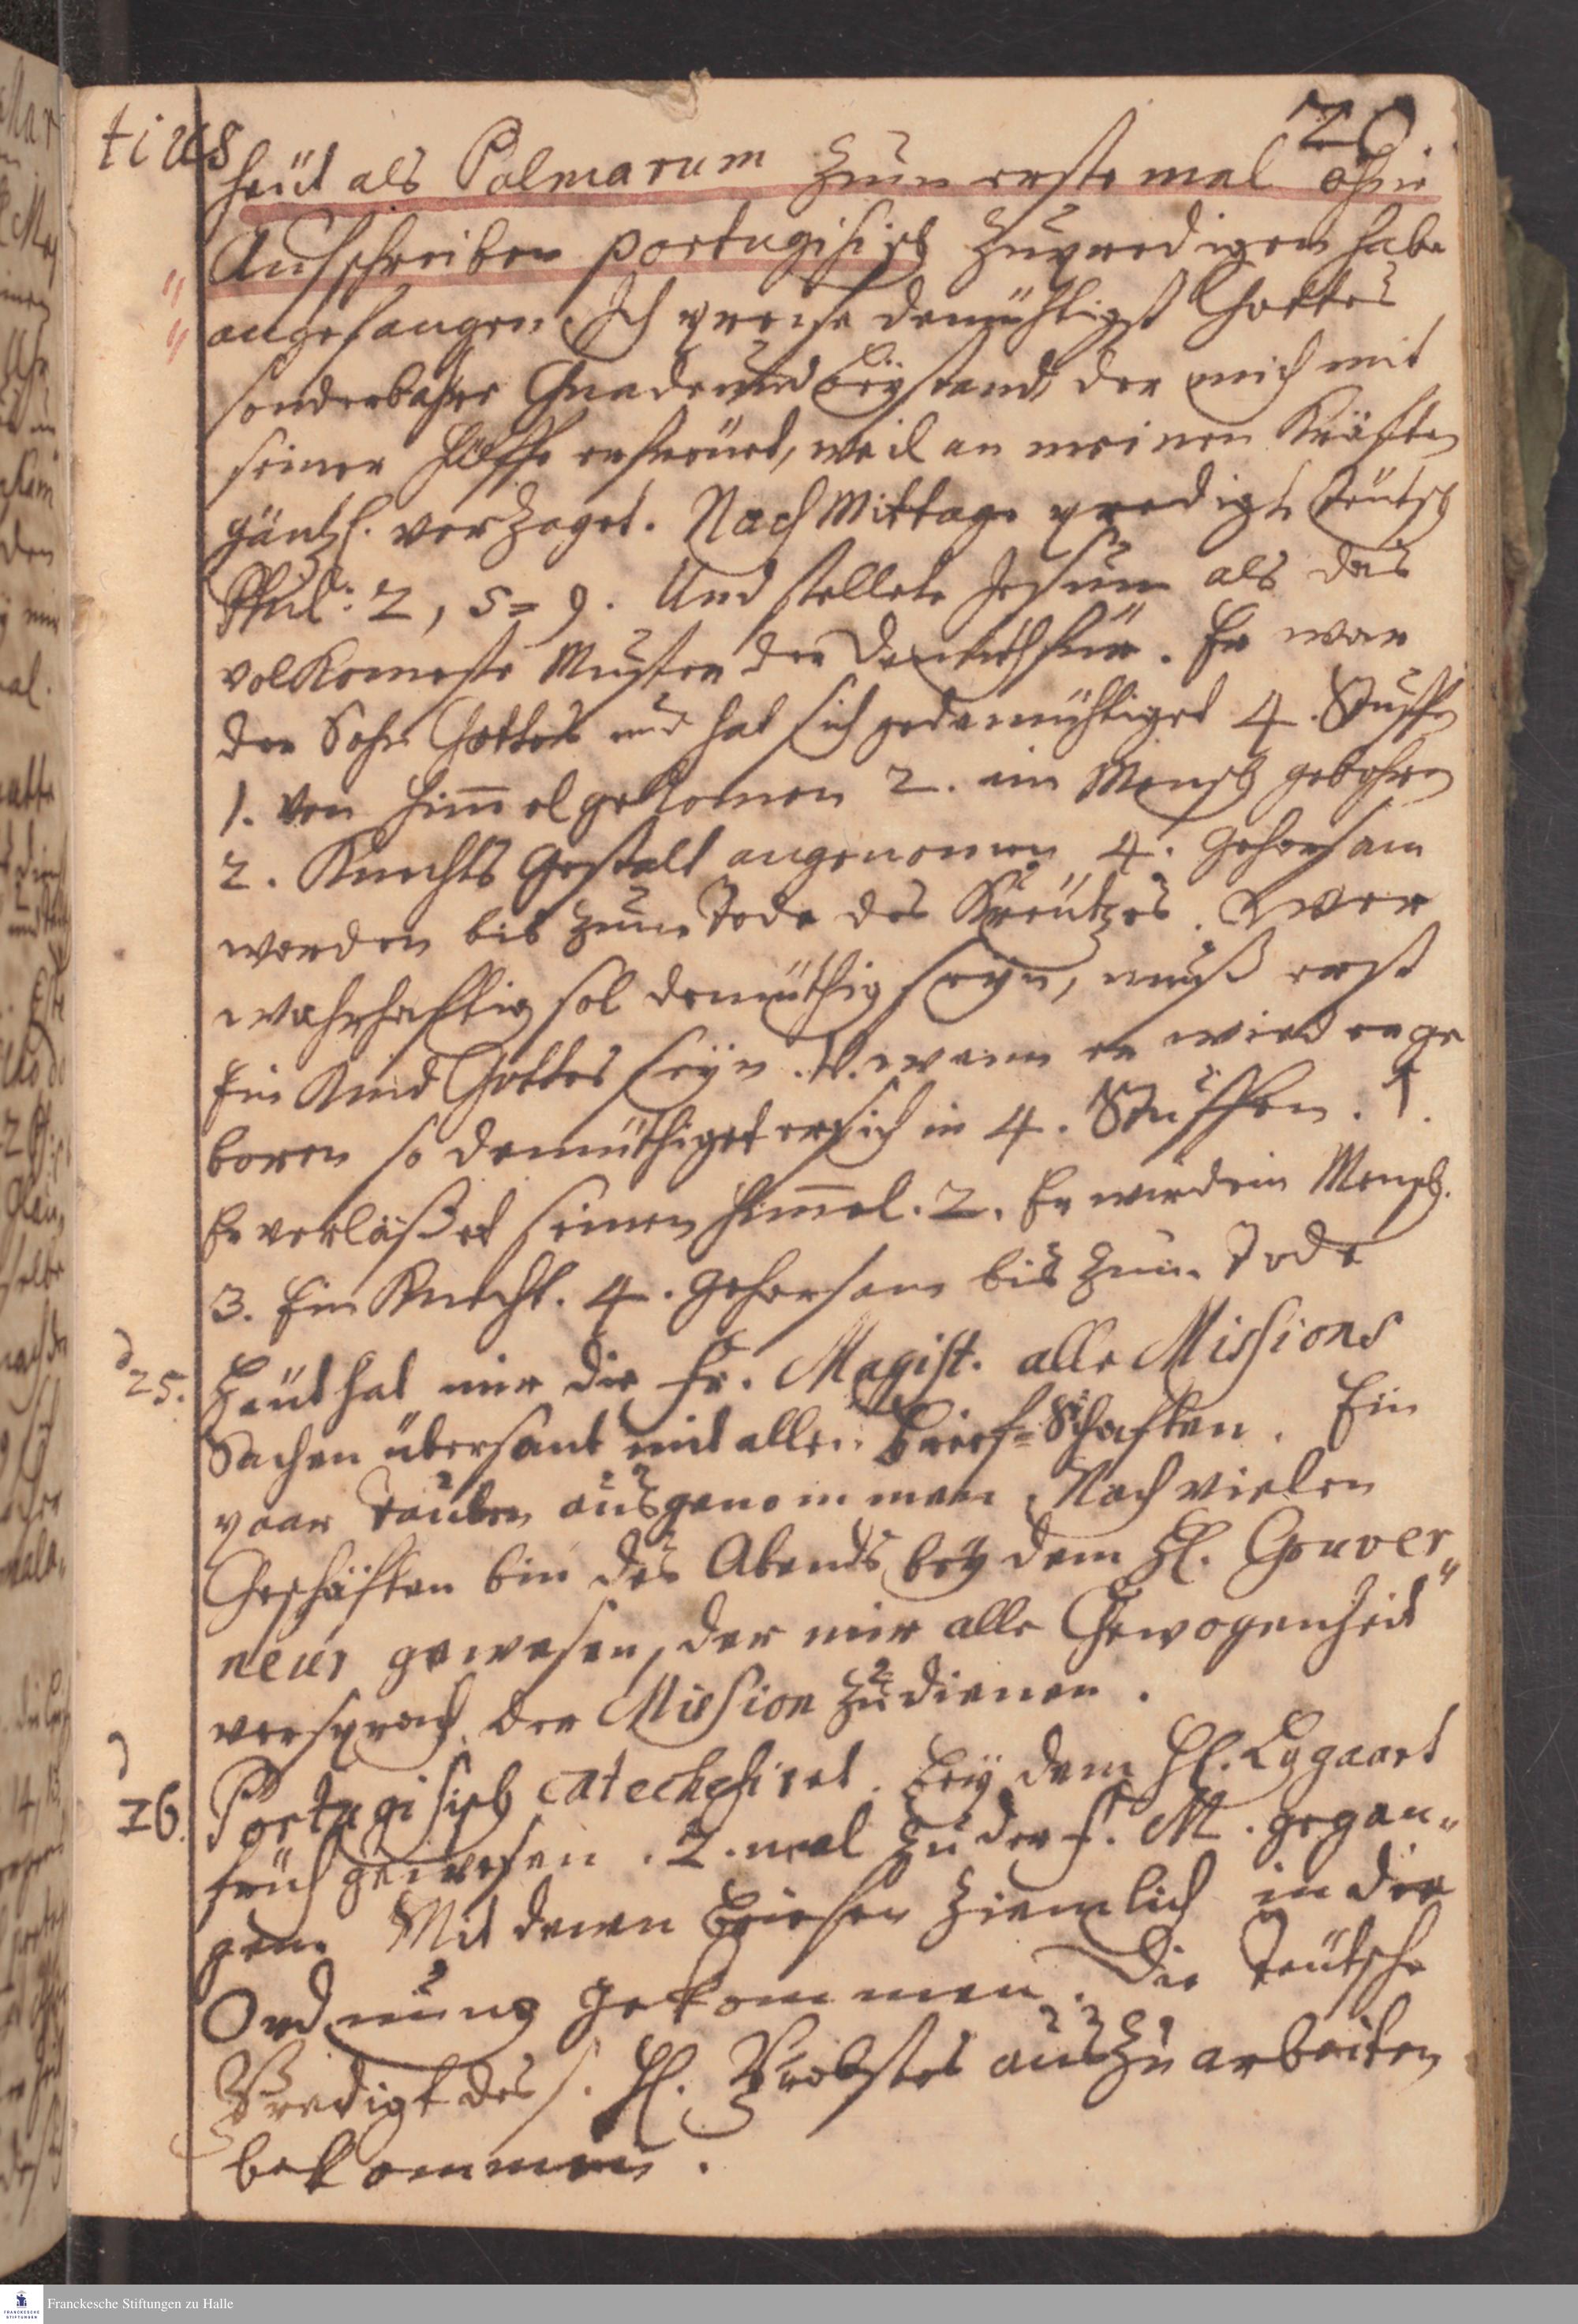 tius
20.
heüt als Palmarum zum erste mal ohne
Aufschreiben portugisisch zu predigen habe
angefangen. Ich preise demüthigst Gottes
sonderbahre Gnade und Beystand, der mich mit
seiner Hülffe erfreüet, weil an meinen Kräfften
gäntzl. verzaget. Nach Mittage predigte teütsch
Phil: 2, 5=9. Und stellete Jesum als das
volkomeste Muster der Demuth für. Er war
der Sohn Gottes und hat sich gedemüthiget 4. Stuffen
1. Von Himmel gekomen 2. ein Mensch gebohren
2. Knechts Gestalt angenomen 4. Gehorsam
worden bis zum Tode des Kreützes. Wer
wahrhafftig sol demüthig seyn, muß erst
Ein Kind Gottes seyn. U. wenn er wird erge
boren so demüthiget er sich in 4. Stuffen. 1.
Er verläßet seinen Himmel. 2. Er wird ein Mensch.
3. Ein Knecht. 4. Gehorsam bis zum Tode
d 25. Heüt hat mir die Fr. Magist. alle Missions
Sachen übersant mit allen Brief=Schafften. Ein
paar Tauben ausgenommen. Nach vielen
Geschäfften bin des Abends bey dem Hl. Gouver„
neur gewesen, der mir alle Gewogenheit
versprach der Mission zu dienen.
d 26. Portugisisch catechesiret. Bey dem Hl. Lygaart
früh gewesen. 2. mal zu der Fr. M. gegan„
gen. Mit denen Briefen ziemlich in die
Ordnung gekommen. Die Teütsche
Predigt des s. Hl. Probstes auszuarbeiten
bekommen.
Franckesche Stiftungen zu Halle